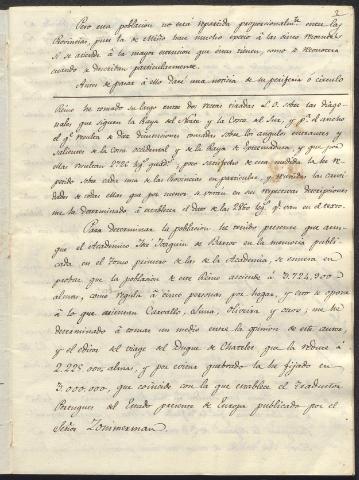 2
Pero esta poblacion no está repartida proporcionalmte. entre las
Provincias, pues la de Miño hace mucho exceso á las otras
si se atiende á la mayor extension que estas tienen, como se reconocerá
cuando se describan particularmente.
Antes de pasar á ello daré una noticia de su periferia ó circulo
Reino he tomado su largo entre dos rectas tiradas E.O. sobre las diago-
nales que siguen la Raya del Norte y la Costa del Sur, y pa. el ancho
el qe. resulta de diez dimensiones tomadas sobre los angulos entrantes y
salientes de la Costa occidental y de la Raya de Extremadura, y que por
ellas resultan leguas quadas.; pero satisfecho de esta medida la he re-
petido sobre cada una de las Provincias en particular, y reunidas las canti-
dades de todas ellas que por menor se veran en sus respectivas descripciones
me ha determinado á establecer el duro de las 2860 legs. qe. van en el texto.
Para determinar la poblacion he tenido presente que aun-
que el Académico José Joaquin de Barros en la memoria publi-
cada en el tomo primero de las de la Academia, se esmera en
probar que la poblacion de este Reino asciende á 3.724,900
almas, como regula á cinco personas por hogar, y esto se opone
á lo que estiman Carvallo, Lima, Oliveira y otros; me he
determinado á tomar un medio entre la opinion de este autor
y el editor del viage del Duque de Chatelet que la reduce á
2.225,000 almas, y por evitar quebrado la he fijado en
3.000.000, que coincide con la que establece el Traductor
Portugues del Estado presente de Europa publicado por el
Señor Zimmerman.